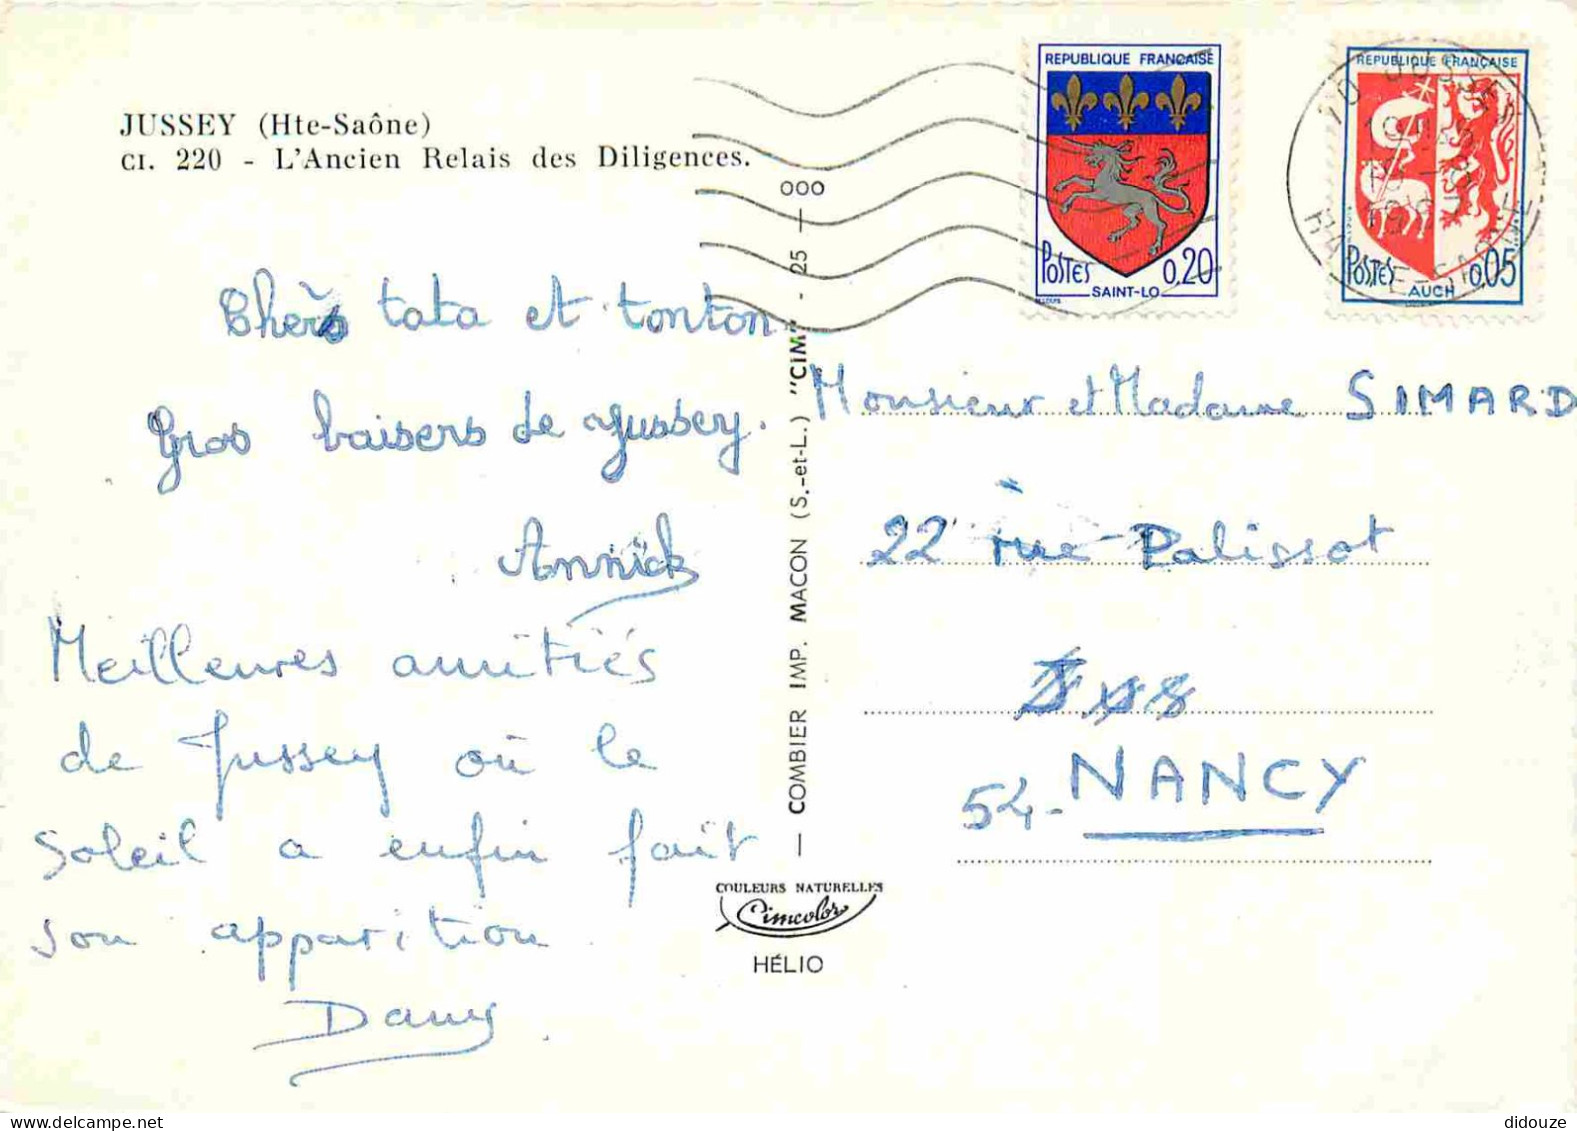 JUSSEY (Hte-Saône)
CI. 220 - L'Ancien Relais des Diligences.
Chers tata et tonton
Gros baisers de Jussey.
Annick
Meilleures amitiés
de Jussey où le
soleil a enfin fait
son apparition
Dany
COMBIER IMP. MACON (S.-et-L.) "CIM" - 25 - 000
COULEURS NATURELLES
Cimcolor
HÉLIO
REPUBLIQUE FRANÇAISE
POSTES 0,20
SAINT-LO
REPUBLIQUE FRANÇAISE
POSTES 0,05
AUCH
70 JUSSEY
HAUTE-SAONE
Monsieur et Madame SIMARD
22 rue Palissot
54-NANCY
didouze